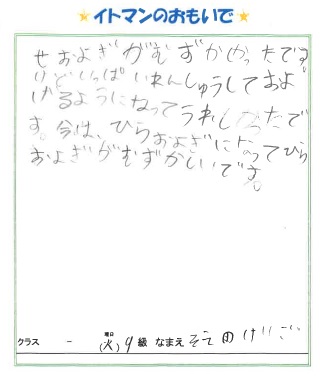 ★イトマンのおもいで★
せおよぎがむずかかったです。
けどいっぱいれんしゅうしておよ
げるようになってうれしかったで
す。今は、ひらおよぎになってひら
およぎがむずかしいです。
クラス - 曜日 (火) 9級 なまえ